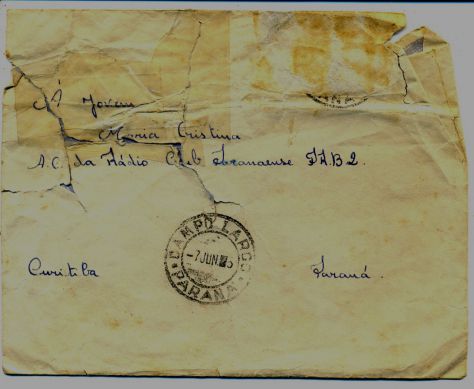 ANA
À Jovem
Maria Cristina
A.C. da Rádio Club Paranaense P.R.B2.
CAMPO LARGO
-7 JUN
PARANÁ
Curitiba Paraná.